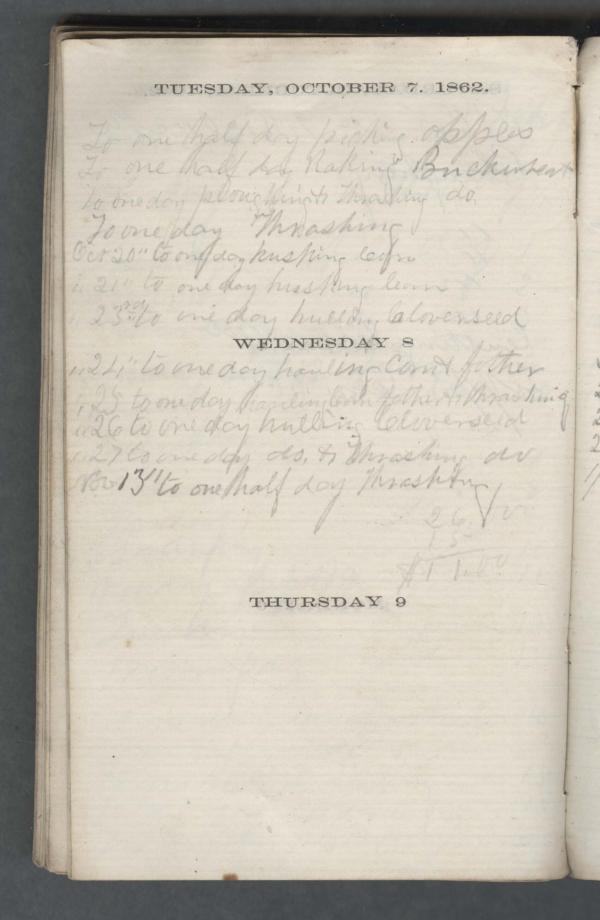 TUESDAY, OCTOBER 7. 1862.
To one half day picking apples
To one half day Raking Buckwheat
To one day ploughing & Thrashing do
To one day Thrashing
Oct 20" to one day husking corn
" 21" to one day husking corn
" 23rd to one day hulling Cloverseed
WEDNESDAY 8
" 24" to one day hauling Corn & fother
" 25 to one day hauling Corn fother & thrashing
" 26 to one day hulling Cloverseed
" 27 to one day do. & Thrashing do
Nov 13" to one half day Thrashing
26
15
$11.00
THURSDAY 9